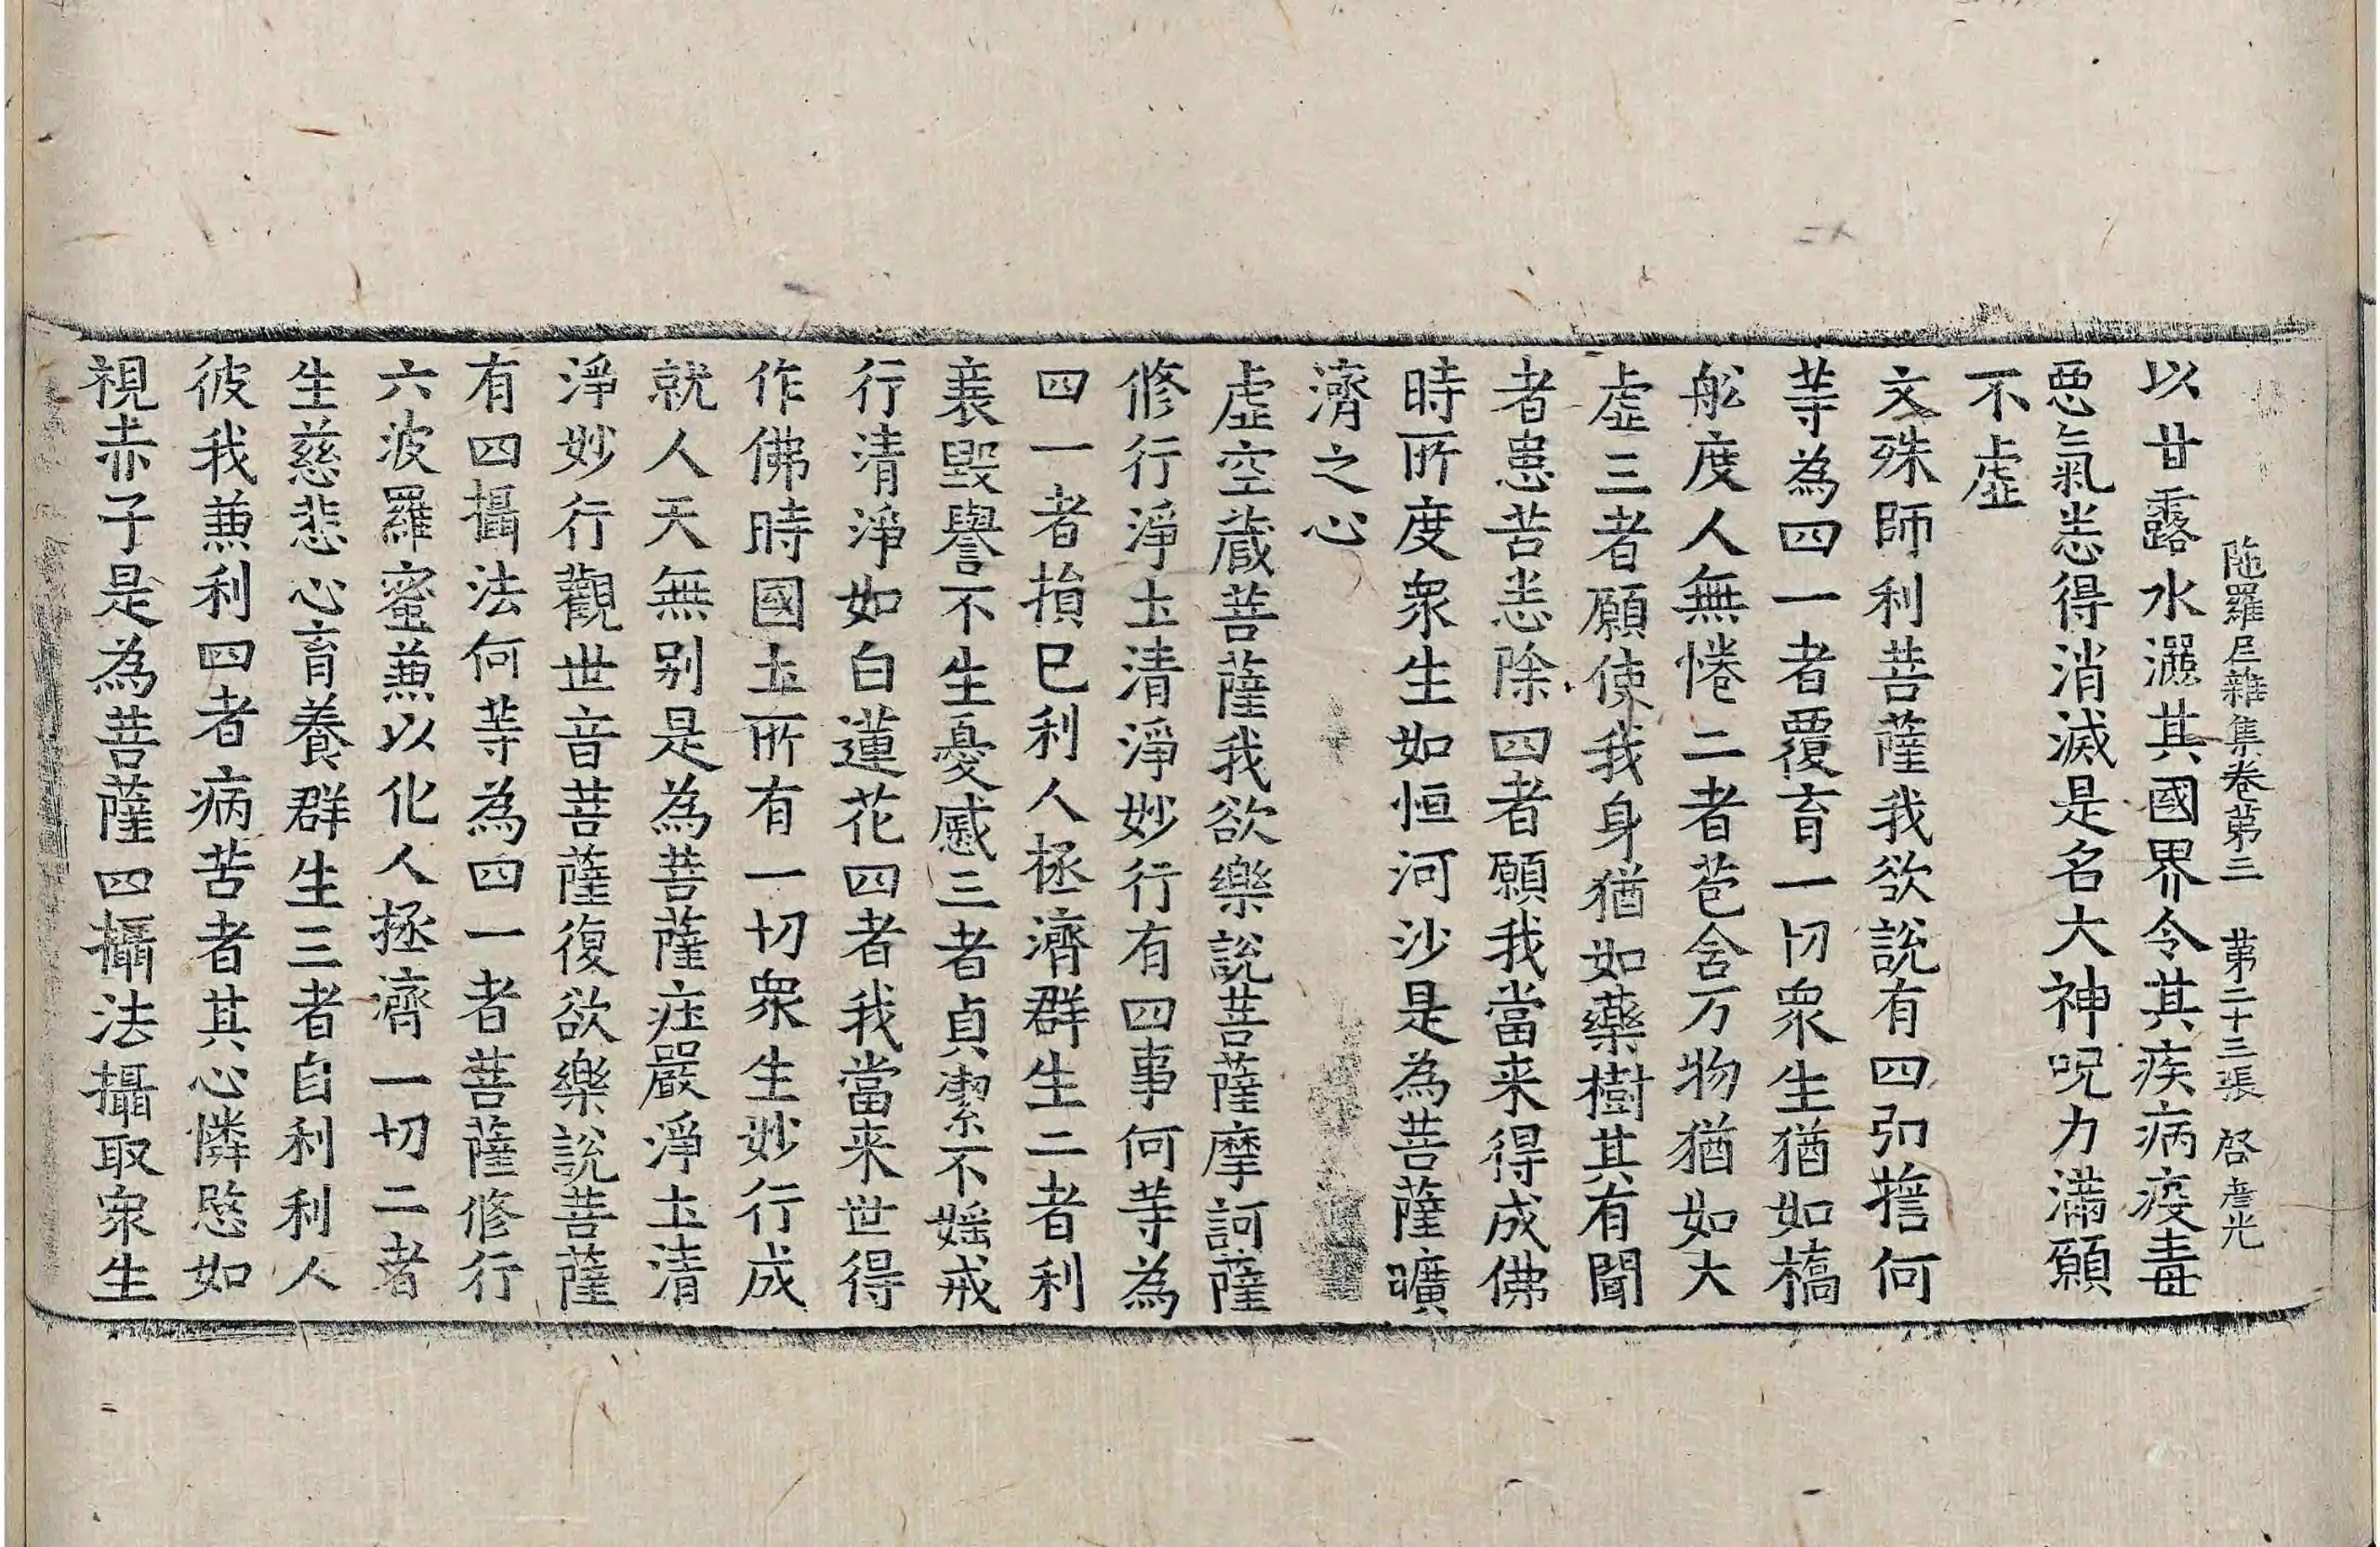 陁羅尼雜集卷苐二　苐二十三張　啓彥光
以甘露水灑其國界令其疾病疫毒
惡氣悉得消滅是名大神呪力滿願
不虛
文殊師利菩薩我欲說有四弘誓何
等為四一者覆育一切衆生猶如橋
舩度人無惓二者苞含万物猶如大
虛三者願使我身猶如藥樹其有聞
者患苦悉除四者願我當来得成佛
時所度衆生如恒河沙是為菩薩曠
濟之心
虛空蔵菩薩我欲樂說菩薩摩訶薩
修行淨土清淨妙行有四事何等為
四一者損己利人拯濟群生二者利
衰毀譽不生憂慼三者貞潔不婬戒
行清淨如白蓮花四者我當来世得
作佛時國土所有一切衆生妙行成
就人天無別是為菩薩莊嚴淨土清
淨妙行觀世音菩薩復欲樂說菩薩
有四攝法何等為四一者菩薩修行
六波羅蜜兼以化人拯濟一切二者
生慈悲心育養群生三者自利利人
彼我兼利四者病苦者其心憐愍如
視赤子是為菩薩四攝法攝取衆生